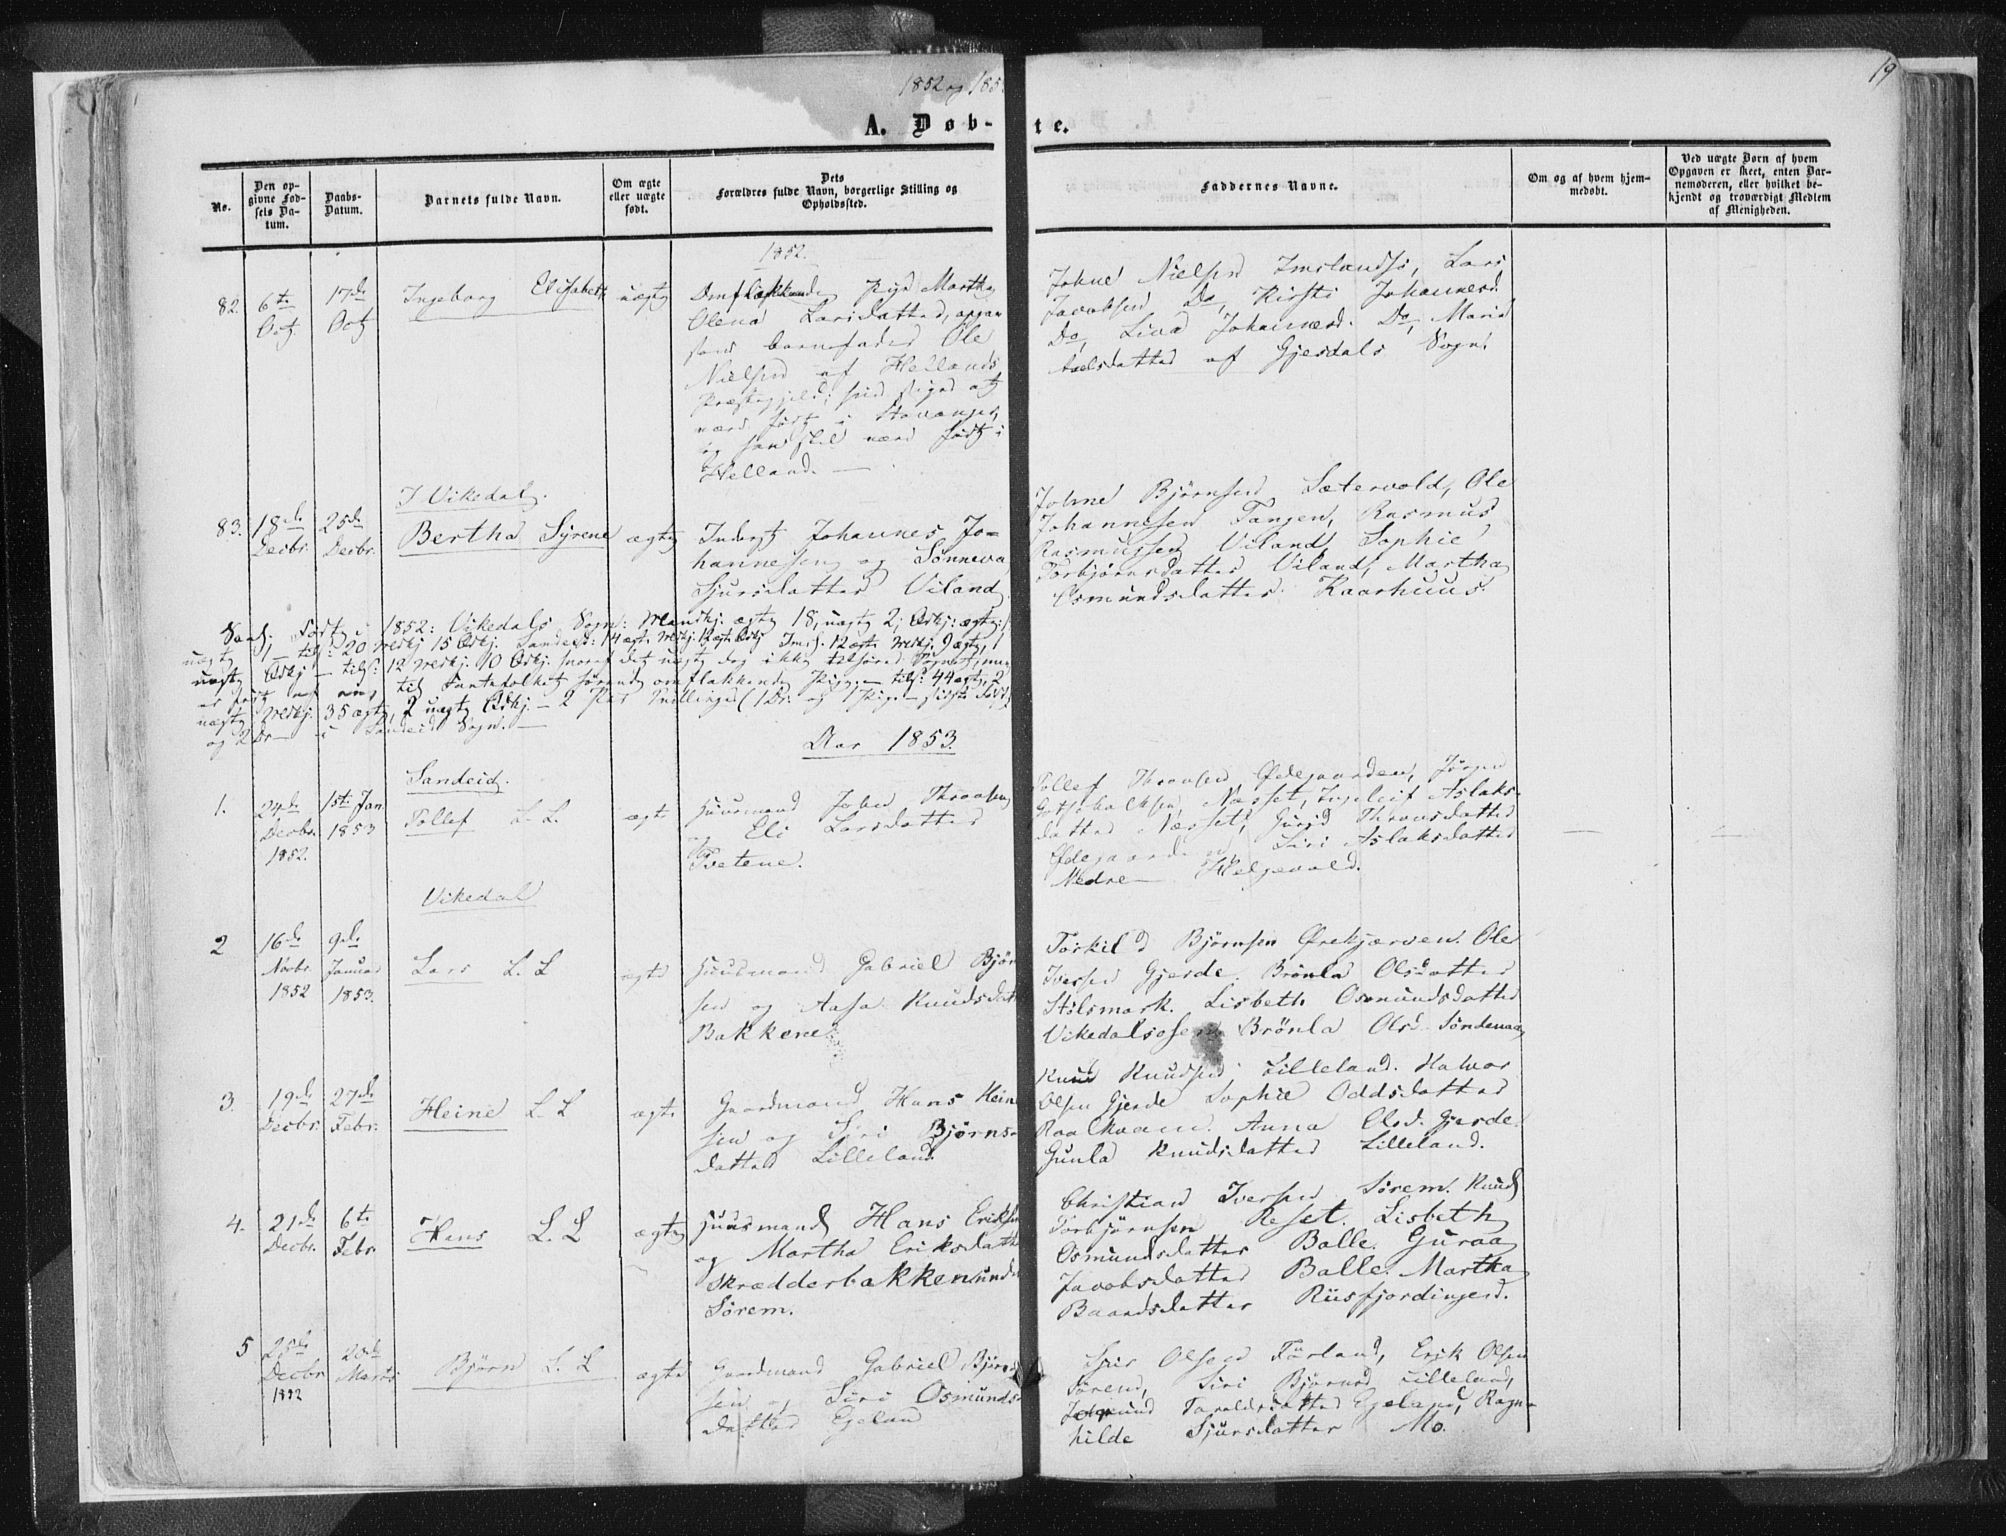 1852 og 185
19
A. Døb-
te.
No.
Den op-
givne Fød-
sels Da-
tum.
Daabs-
Datum.
Barnets fulde Navn.
Om ægte
eller uægte
født.
Dets
Forældres fulde Navn, borgerlige Stilling og
Opholdssted.
Faddernes Navne.
Om og af hvem hjem-
medøbt.
Ved uægte Børn af hvem
Opgaven er skeet, enten Bar-
nemoderen, eller hvilket be-
kjendt og troværdigt Medlem
af Menigheden.
1852.
82.
6te
Oct.
17de
Oct
Ingeborg Elisabeth
uægte
Omflakkende Pige Martha
Olena Larsdatter, opgav
som barnefader Ole
Nielsen af Hellands
Præstegjeld; hun siges at
være født i Stavanger,
og han skal være født i
Helland. —
Johne Nielsen Imslandsjø, Lars
Jacobsen Do, Kirsti Johannesd.
Do, Liva Johannesd. Do, Maria
Axelsdatter af Gjesdals Sogn.
I Vikedal.
83.
18de
Decbr.
25de
Decbr.
Bertha Syrene
ægte
Inderst Johannes Jo-
hannesen og Sønneva
Sjursdatter Viland
Johne Bjørnsen Sætervold, Ole
Johannesen Tangen, Rasmus
Rasmussen Viland, Sophie
Torbjørnsdatter Viland, Martha
Osmundsdatter Kaarhuus.
1852: Vikedals Sogn: Mandkj. ægte 18, uægte 2; Qvkj: ægte:
20 Mkj 15 Qvkj. Sandeid: 14 ægte Mkj. 12 ægte Qvkj Ims: 12 ægte Mkj. 9 ægte, 1
uægte Qvkj — tils: 12 Mkj. 10 Qvkj. hvoraf det uægte dog ikke tilhører Sognet, men
er født af en, til Fantefolket hørende omflakkende Pige. — tils: 44 ægte, 2
uægte Mkj. 35 ægte, 2 uægte Qvkj. — 2 Par Tvillinger (1 Dr. og 1 Pige — sidste
og 2 Dr — i Sandeid Sogn. —
Aar 1853.
Sandeid.
1.
24de
Decbr.
1852.
1ste Jan
1853
Tollef L. L.
ægte
Huusmand John Thronsen
og Eli Larsdatter
Tvetene.
Tollef Thronsen Ødegaarden, Jørgen
Gotschalksen Næsset, Ingeleif Aslaks-
datter Næsset, Gurid Thronsdatter
Ødegaarden, Siri Aslaksdatter
Nedre Helgevold.
Vikedal
2
16de
Novbr.
1852
9de
Januar
1853.
Lars L. L
ægte
Huusmand Gabriel Bjørn
sen og Aasa Knudsdatt
Bakkene
Torkild Bjørnsen Ørekjærven. Ole
Iversen Gjerde. Brønla Olsdatter
Stølsmark. Lisbeth Osmundsdatter
Vikedalsosen Brönla Olsd. Söndenaa
3.
19de
Decbr.
27de
Febr.
Heine L. L
ægte
Gaardmand Hans Hein
sen og Siri Bjørns-
datter Lilleland
Knud Knudsen Lilleland. Halvor
Olsen Gjerde Sophie Oddsdatter
Raalkaam. Anna Olsd. Gjerde.
Gunla Knudsdatter Lilleland.
4.
21de
Decbr.
6te
Febr.
Hans L. L
ægte
Huusmand Hans Eriksen
og Martha Eriksdatter
Skrædderbakken und
Sörem.
Christian Iversen Sörem. Knud
Torbjørnsen Reset. Lisbeth
Osmundsdatter Balle. Guroa
Jacobsdatter Balle. Martha
Baardsdatter Rüsfjordingen.
5
25de
Decbr
1852
20de
Marts
Bjørn L. L
ægte
Gaardmand Gabriel Bjørn
sen og Siri Osmunds-
datter Egeland
Olsen Förland, Erik Olsen
Sörem, Siri Bjørnsd. Lilleland,
Taraldsdatter Egeland, Ragn-
hilde Sjursdatter Mo.